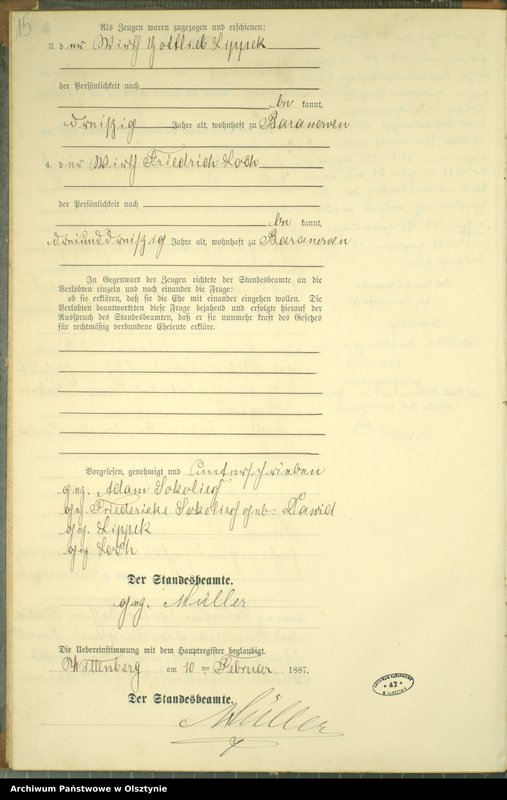 15
Als Zeugen waren zugezogen und erschienen:
3. der Wirth Gottlieb Lippek
der Persönlichkeit nach
be kannt,
dreißig Jahre alt, wohnhaft zu Baranowen
4. der Wirth Friedrich Loch
der Persönlichkeit nach
be kannt,
dreiunddreißig Jahre alt, wohnhaft zu Baranowen
In Gegenwart der Zeugen richtete der Standesbeamte an die
Verlobten einzeln und nach einander die Frage:
ob sie erklären, daß sie die Ehe mit einander eingehen wollen. Die
Verlobten beantworteten diese Frage bejahend und erfolgte hierauf der
Ausspruch des Standesbeamten, daß er sie nunmehr kraft des Gesetzes
für rechtmäßig verbundene Eheleute erkläre.
Vorgelesen, genehmigt und unterschrieben
gez. Adam
gez. Friedericke geb. Dawid
gez. Lippek
gez Loch
Der Standesbeamte.
gez. Müller
Die Uebereinstimmung mit dem Hauptregister beglaubigt.
am 10 ten Februar 1887.
Der Standesbeamte.
Müller
42
Archiwum Państwowe w Olsztynie